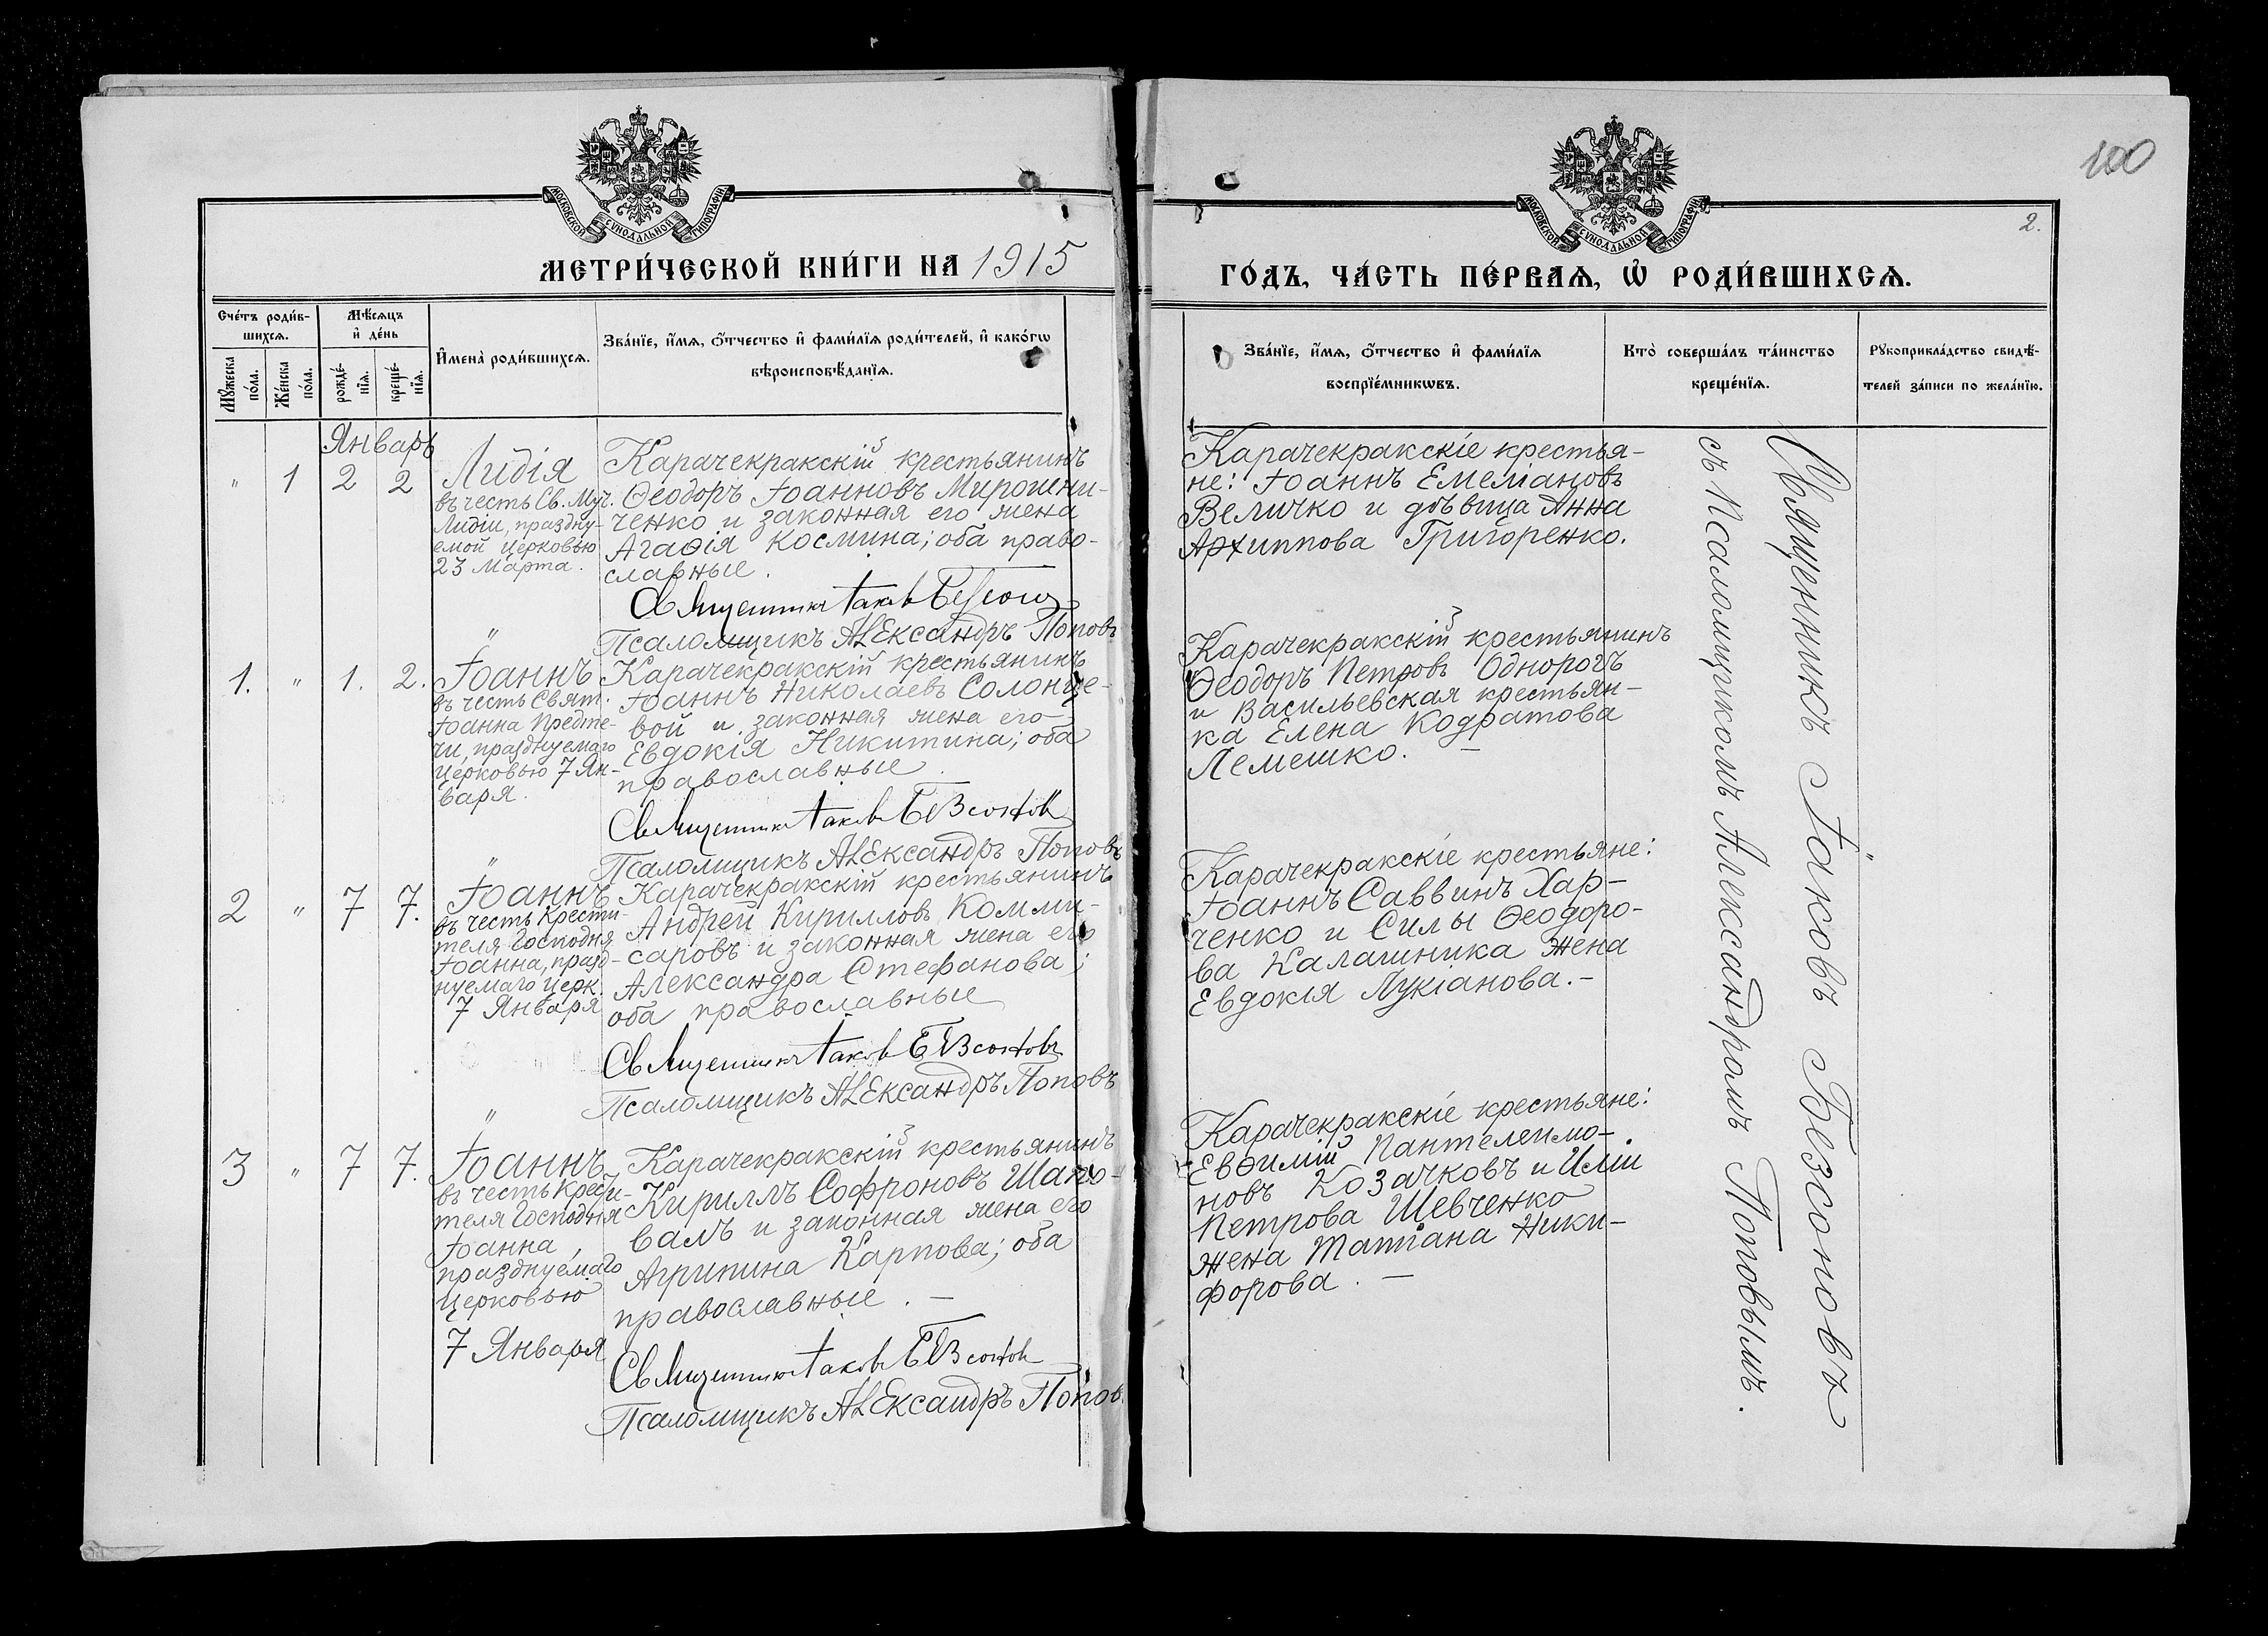 100
2.
МОСКОВСКОЙ СУНОДАЛЬНОЙ ТИПОГРАФІИ
МОСКОВСКОЙ СУНОДАЛЬНОЙ ТИПОГРАФІИ
МЕТРИ́ЧЕСКОЙ КНИ́ГИ НА 1915
ГО́ДЪ, ЧА́СТЬ ПЕ́РВАѦ, Ѡ҆ РОДИ́ВШИХСѦ.
Сче́тъ роди́в-
шихсѧ.
Мꙋжеска
по́ла.
Же́нска
по́ла.
Мѣ́сѧцъ
и҆ де́нь
рожде́-
нїѧ.
креще́-
нїѧ.
И҆мена̀ роди́вшихсѧ.
Зва́нїе, и҆́мѧ, ѻ҆́тчество и҆ фами́лїѧ роди́телей, и҆ како́гѡ
вѣроисповѣ́данїѧ.
Зва́нїе, и҆́мѧ, ѻ҆́тчество и҆ фами́лїѧ
воспрїе́мникѡвъ.
Кто̀ соверша́лъ та́инство
креще́нїѧ.
Рꙋкоприкла́дство свидѣ́-
телей за́писи по жела́нїю.
Январь
" 1 2 2
Лидія
въ честь Св. Муч.
Лидіи, праздну-
емой Церковью
23 Марта.
Карачекракскій крестьянинъ
Ѳеодоръ Іоанновъ Мирошни-
ченко и законная его жена
Агаѳія Космина; оба право-
славные.
Священникъ Іаковъ Безсоновъ
Псаломщикъ Александръ Поповъ
Карачекракскіе крестья-
не: Іоаннъ Емеліановъ
Величко и дѣвица Анна
Архиппова Григоренко.
"
1. " 1. 2.
Іоаннъ
въ честь Свят.
Іоанна Предте-
чи, празднуемаго
Церковью 7 Ян-
варя.
Карачекракскій крестьянинъ
Іоаннъ Николаевъ Солонце-
вой и законная жена его
Евдокія Никитина; оба
православные.
Священникъ Іаковъ Безсоновъ
Псаломщикъ Александръ Поповъ
Карачекракскій крестьянинъ
Ѳеодоръ Петровъ Однорогъ
и Васильевская крестьян-
ка Елена Кодратова
Лемешко. –
"
2 " 7 7.
Іоаннъ
въ честь Крести-
теля Господня
Іоанна, празд-
нуемаго Церк.
7 Января
Карачекракскій крестьянинъ
Андрей Кирилловъ Комми-
саровъ и законная жена его
Александра Стефанова;
оба православные
Священникъ Іаковъ Безсоновъ
Псаломщикъ Александръ Поповъ
Карачекракскіе крестьяне:
Іоаннъ Саввинъ Хар-
ченко и Силы Ѳеодоро-
ва Калашника жена
Евдокія Лукіанова. –
"
3 " 7 7.
Іоаннъ
въ честь Крести-
теля Господня
Іоанна,
празднуемаго
Церковью
7 Января
Карачекракскій крестьянинъ
Кириллъ Софроновъ Шапо-
валъ и законная жена его
Агрипина Карпова; оба
православные. –
Священникъ Іаковъ Безсоновъ
Псаломщикъ Александръ Попов
Карачекракскіе крестьяне:
Евѳимій Пантелеимо-
новъ Козачковъ и Иліи
Петрова Шевченко
жена Татіана Ники-
форова. –
Священникъ Іаковъ Безсоновъ
съ Псаломщикомъ Александромъ Поповымъ.